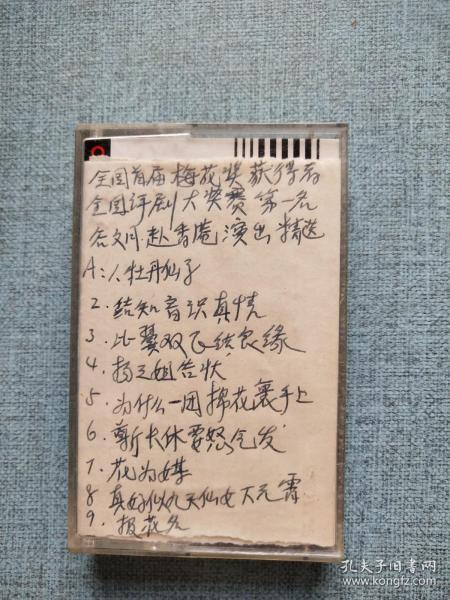 全国首届梅花奖获得者
全国评剧大奖赛第一名
谷文月赴香港演出精选
A:1.牡丹仙子
2.结知音识真情
3.比翼双飞结良缘
4.杨三姐告状
5.为什么一团棉花裹手上
6.新大休要怒气发
7.花为媒
8真好似九天仙女下元霄
9.报花名
孔夫子旧书网
www.kongfz.com